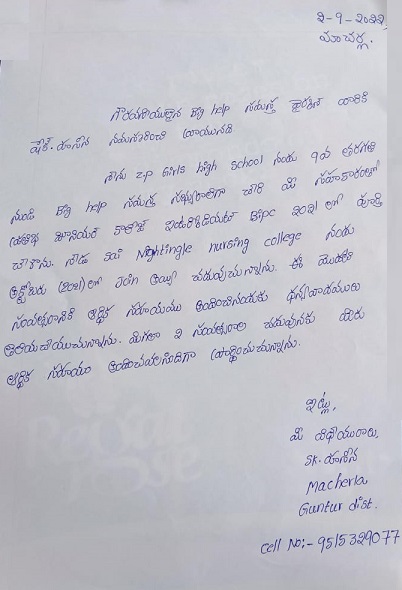 2-9-2022,
మాచర్ల.
గౌరవనీయులైన Big help సమస్త డైరెక్టర్ వారికి
షేక్. యాసిన నమస్కరించి వ్రాయునది
నేను z.p Girls high School నందు 9వ తరగతి
నుండి Big help సమస్త సభ్యురాలిగా చేరి మీ సహకారంతో
ప్రతిభ జూనియర్ కాలేజ్ ఇంటర్మీడియట్ Bipc 2021 లో పూర్తి
చేశాను. నేను Sai Nightingle nursing college నందు
అక్టోబరు (2021) లో Join అయ్యి చదువుచున్నాను. ఈ మొదటి
సంవత్సరానికి ఆర్థిక సహాయము అందించినందుకు ధన్యవాదములు
తెలియచేయుచున్నాను. మిగతా 2 సంవత్సరాల చదువునకు మీరు
ఆర్థిక సహాయం అందించవలసిందిగా ప్రార్థించుచున్నాను.
ఇట్లు,
మీ విధేయురాలు,
SK. యాసిన
Macherla
Guntur dist.
Cell No:- 9515329077